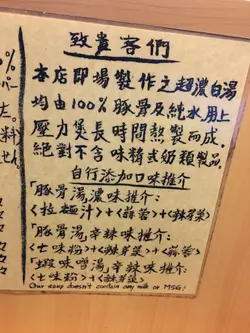 致貴客們
本店即場製作之超濃白湯
均由100%豚骨及純水,用上
壓力煲長時間熬製而成,
絕對不含味精或奶類製品。
自行添加口味推介
「豚骨湯濃味推介:
<拉麵汁>+<蒜蓉>+<辣芽菜>
「豚骨湯辛辣味推介:
<七味粉>+<辣芽菜>+<蒜蓉>
「蝦味噌湯」辛辣味推介:
<七味粉>+<辣芽菜>
Our soup doesn't contain any milk or MSG!
%
パー
た。
料
せん